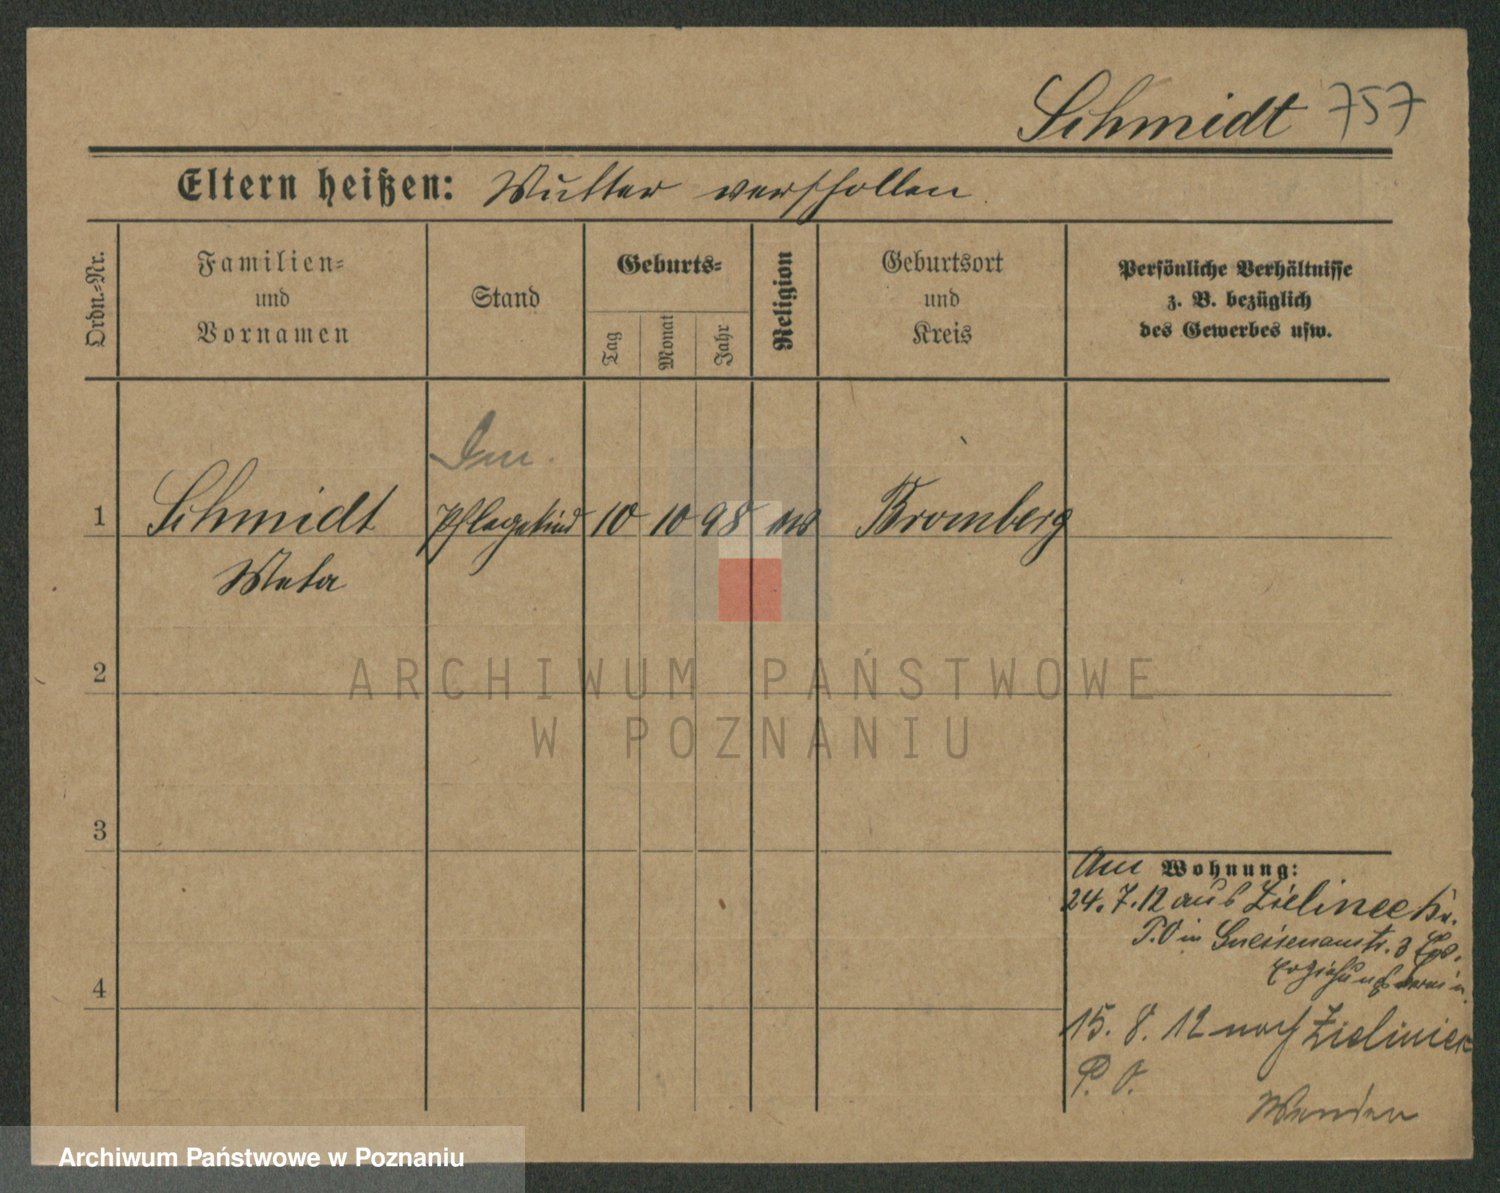 Schmidt 757
Eltern heißen: Mutter verschollen.
Ordn.-Nr.
Familien-
und
Vornamen
Stand
Geburts-
Tag
Monat
Jahr
Religion
Geburtsort
und
Kreis
Persönliche Verhältnisse
z. B. bezüglich
des Gewerbes usw.
1
Schmidt
Meta
Pflegekind
10 10 98
ev
Bromberg
2
ARCHIWUM PAŃSTWOWE
W POZNANIU
3
Am Wohnung:
24. 7. 12 aus Zielinec Kr.
P. O in Gneisenaustr. 3
Erziehungsverein
4
15. 8. 12 nach Zieliniec
P. O.
Wenden
Archiwum Państwowe w Poznaniu